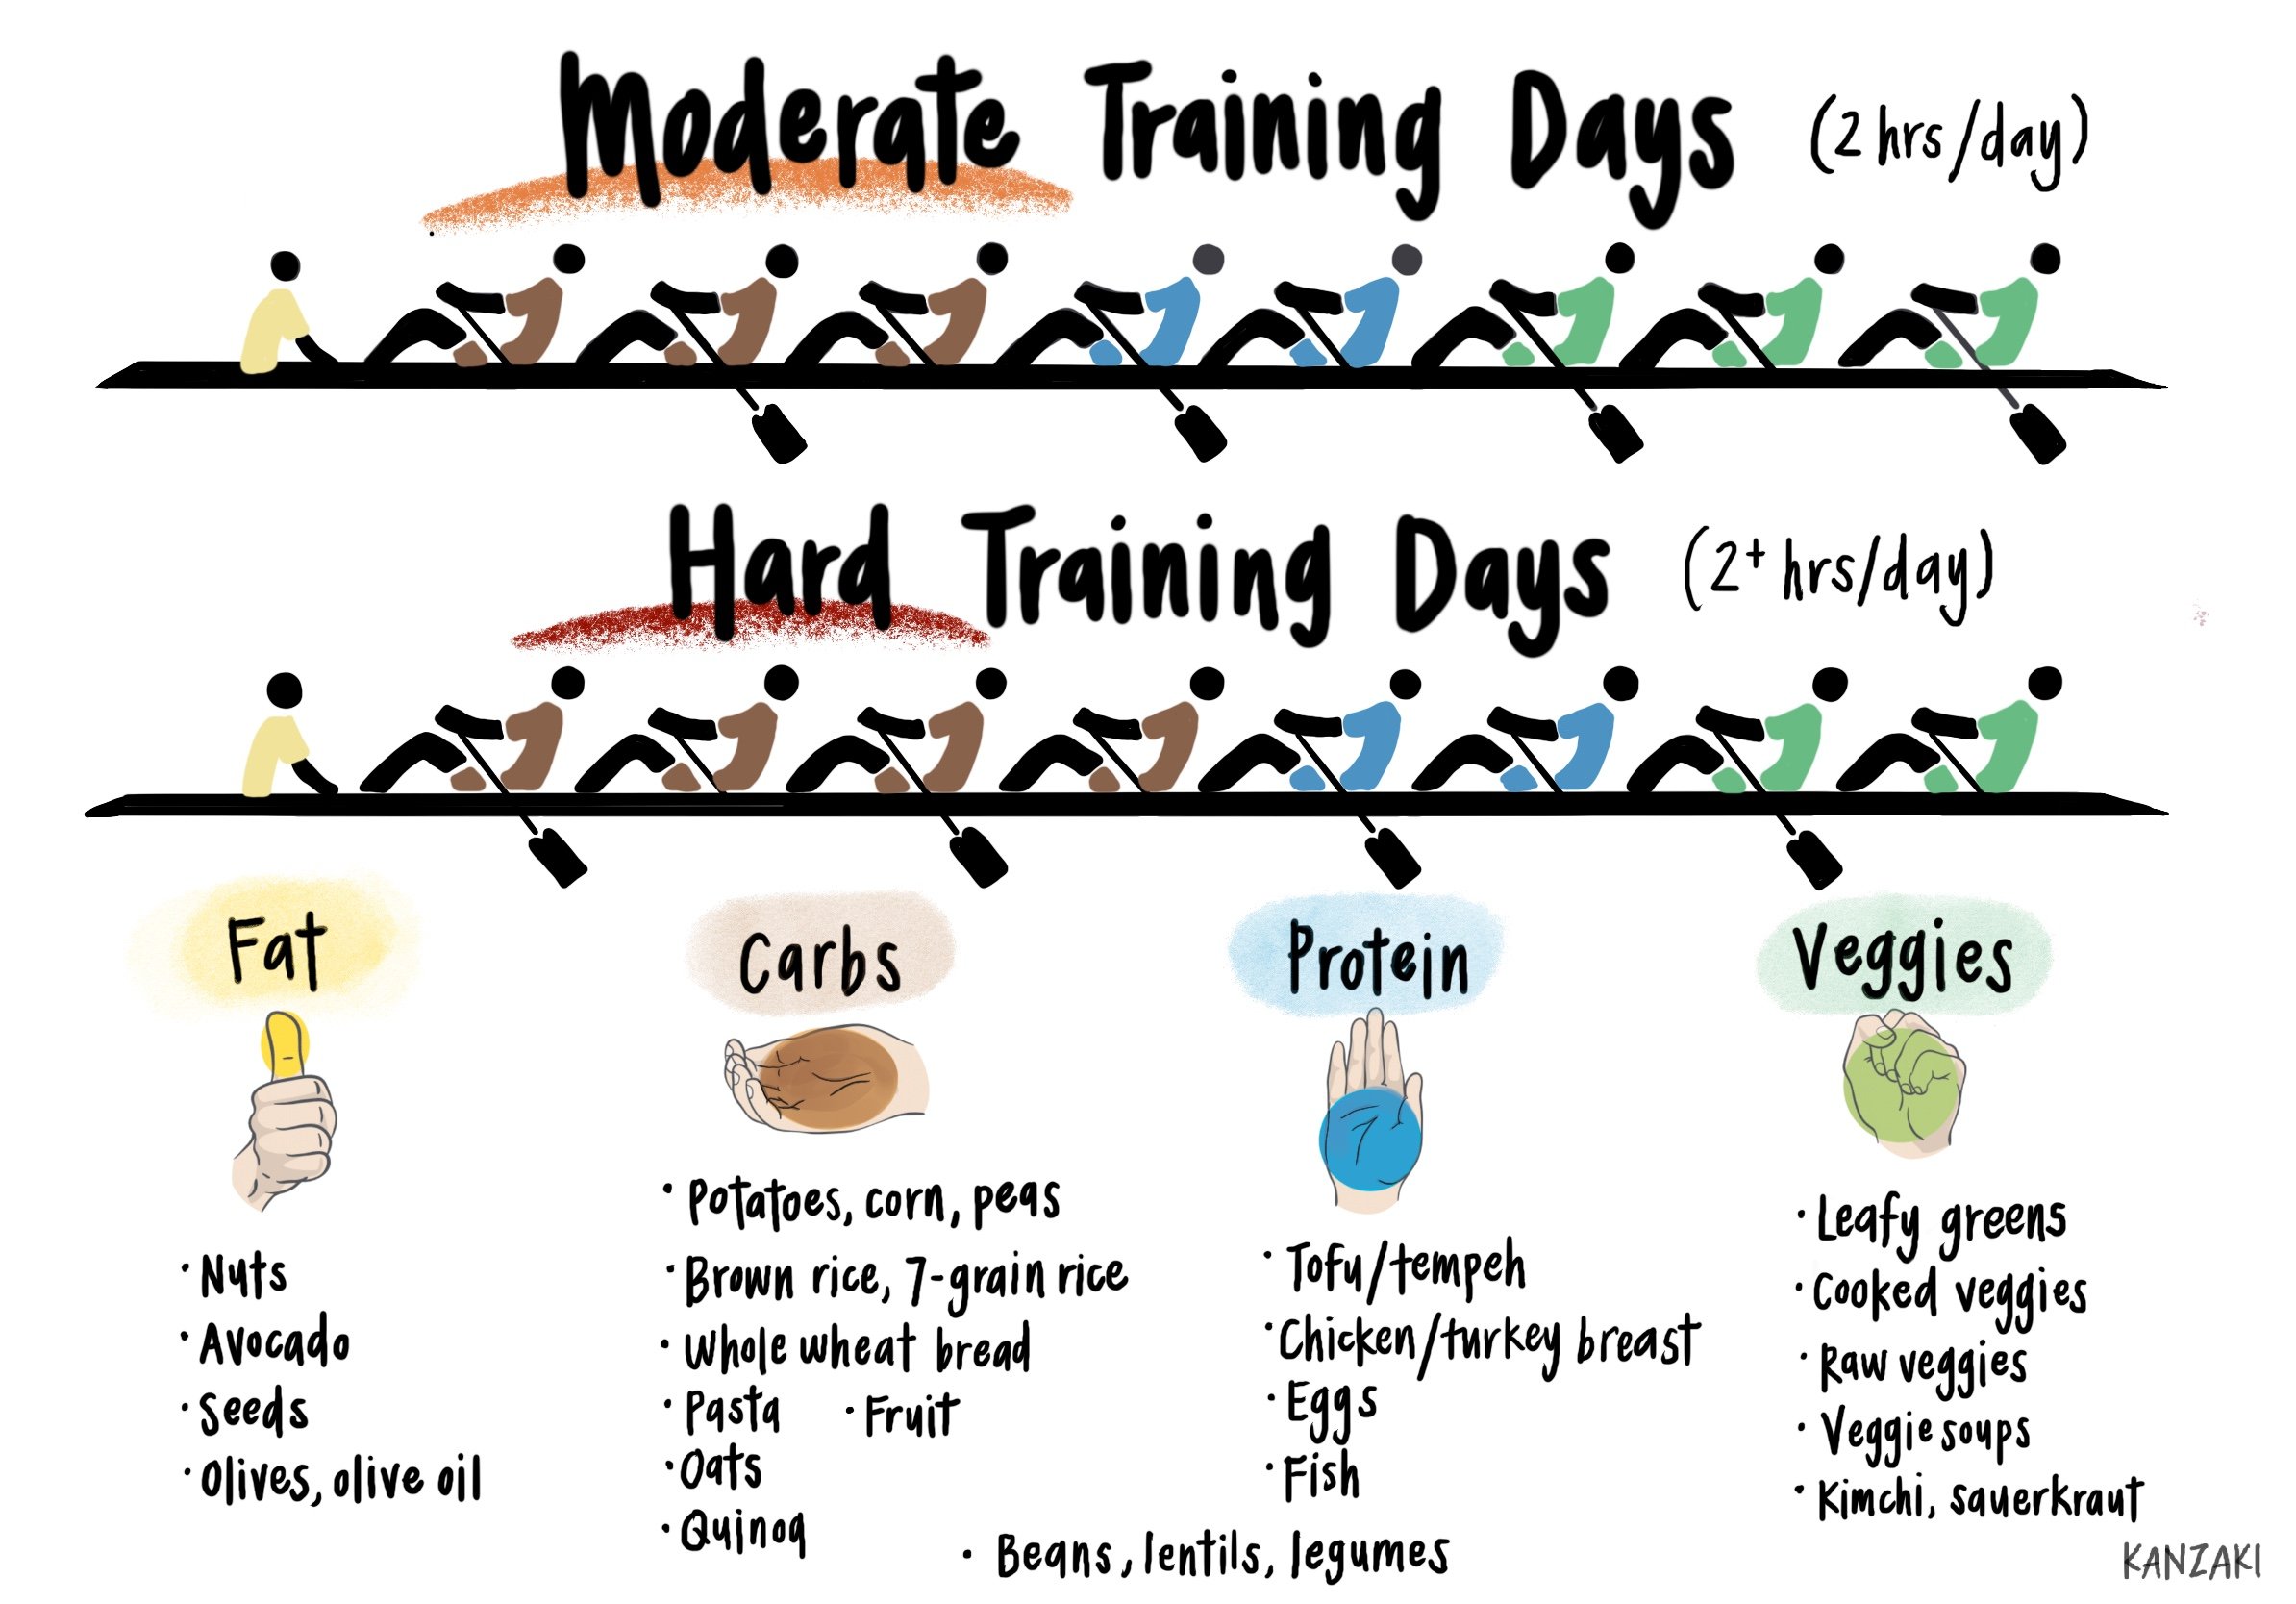 Moderate Training Days (2 hrs/day)
Hard Training Days (2+ hrs/day)
Fat
Carbs
Protein
Veggies
· Nuts
· Avocado
· Seeds
· Olives, olive oil
· Potatoes, corn, peas
· Brown rice, 7-grain rice
· Whole wheat bread
· Pasta · Fruit
· Oats
· Quinoa
· Beans, lentils, legumes
· Tofu/tempeh
· Chicken/turkey breast
· Eggs
· Fish
· Leafy greens
· Cooked veggies
· Raw veggies
· Veggie soups
· Kimchi, sauerkraut
KANZAKI